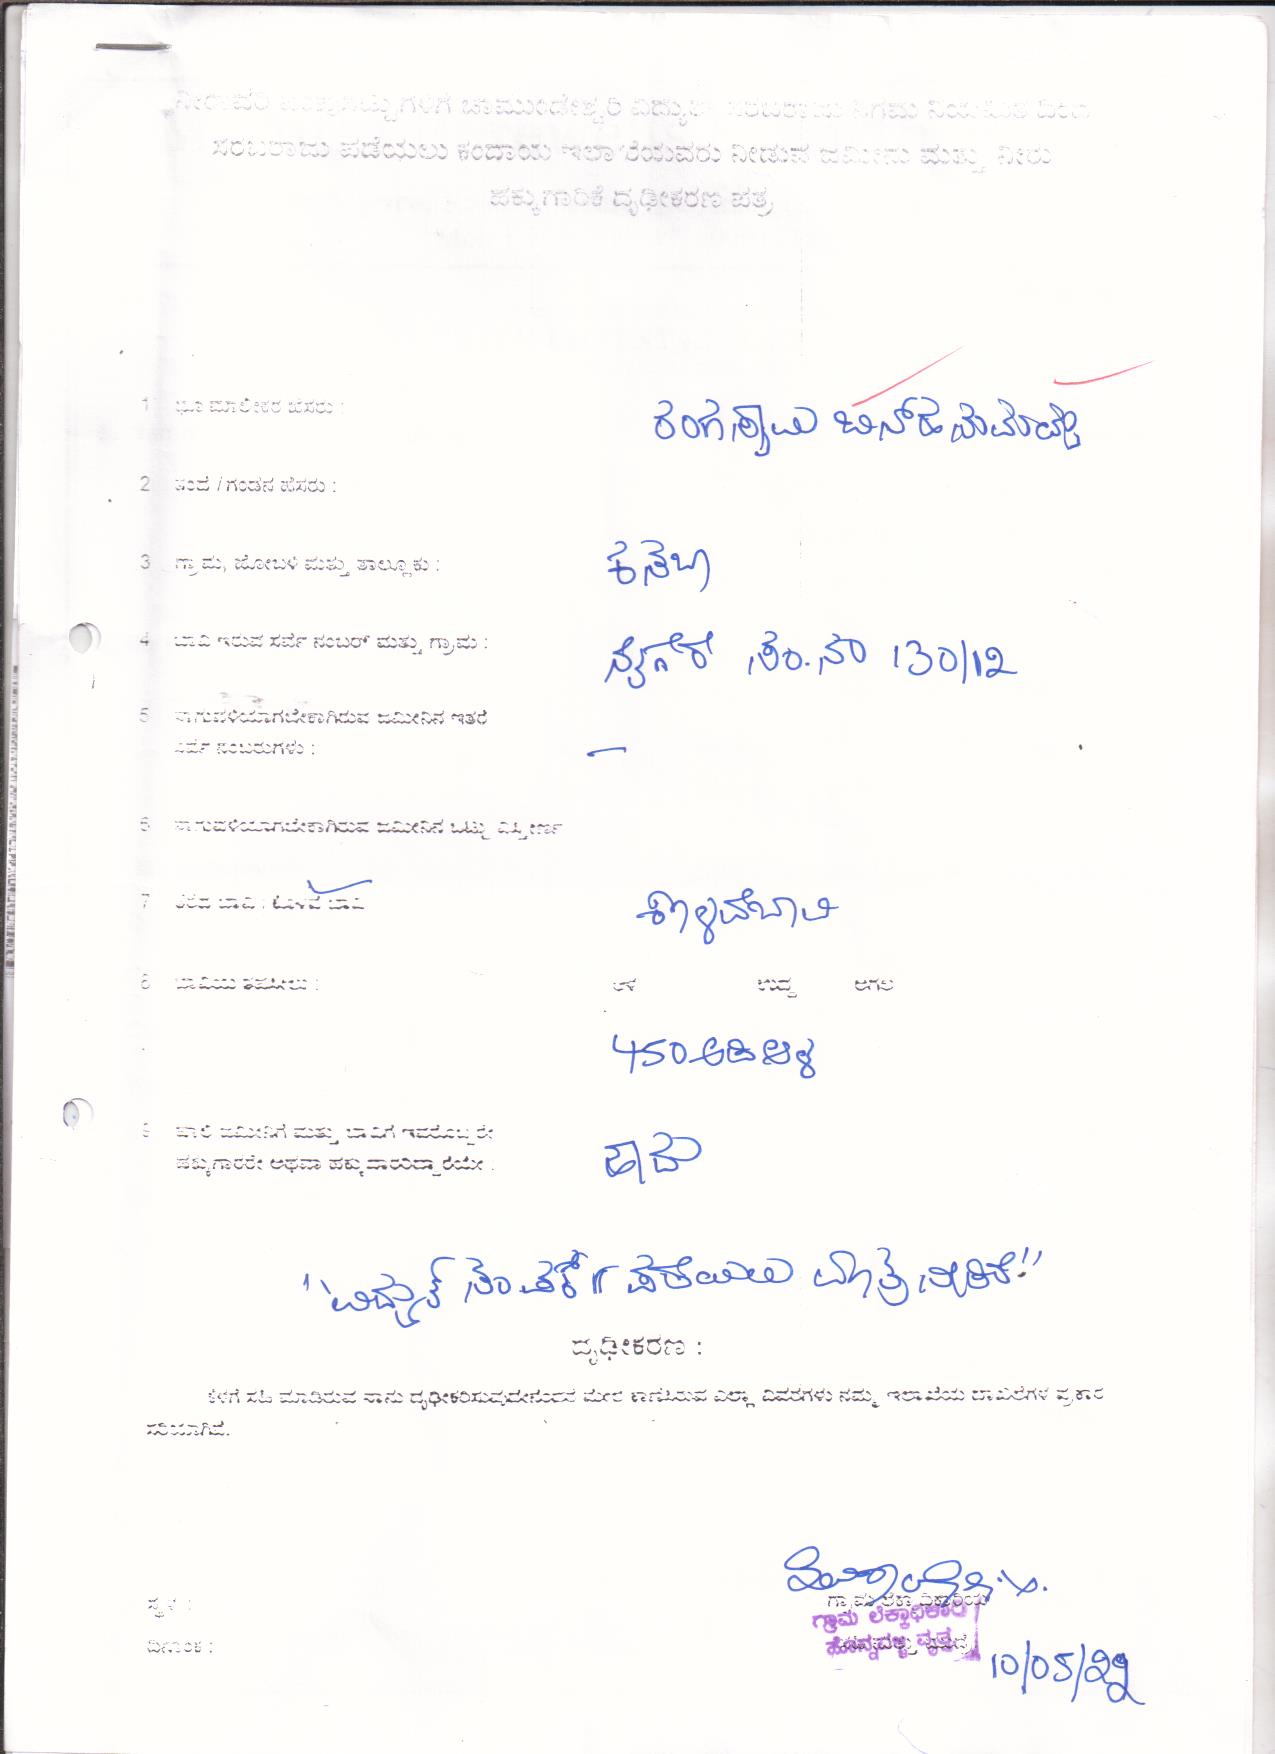 ನೀರಾವರಿ ಪಂಪ್ಸೆಟ್ಟುಗಳಿಗೆ ಚಾಮುಂಡೇಶ್ವರಿ ವಿದ್ಯುತ್ ಸರಬರಾಜು ನಿಗಮ ನಿಯಮಿತ ದಿಂದ
ಸರಬರಾಜು ಪಡೆಯಲು ಕಂದಾಯ ಇಲಾಖೆಯವರು ನೀಡುವ ಜಮೀನು ಮತ್ತು ನೀರು
ಹಕ್ಕುಗಾರಿಕೆ ದೃಢೀಕರಣ ಪತ್ರ
1 ಭೂ ಮಾಲೀಕರ ಹೆಸರು : ರಂಗಸ್ವಾಮಿ ಬಿನ್
2 ತಂದೆ / ಗಂಡನ ಹೆಸರು :
3 ಗ್ರಾಮ, ಹೋಬಳಿ ಮತ್ತು ತಾಲ್ಲೂಕು : ಕಸಬಾ
4 ಬಾವಿ ಇರುವ ಸರ್ವೆ ನಂಬರ್ ಮತ್ತು ಗ್ರಾಮ : ಸಂ. ನಂ 130/12
5 ಸಾಗುವಳಿಯಾಗಬೇಕಾಗಿರುವ ಜಮೀನಿನ ಇತರೆ
ಸರ್ವೆ ನಂಬರುಗಳು : —
6 ಸಾಗುವಳಿಯಾಗಬೇಕಾಗಿರುವ ಜಮೀನಿನ ಒಟ್ಟು ವಿಸ್ತೀರ್ಣ
7 ತೆರೆದ ಬಾವಿ : ಕೊಳವೆ ಬಾವಿ ಕೊಳವೆಬಾವಿ
8 ಬಾವಿಯ ತಪಸೀಲು : ಆಳ ಉದ್ದ ಅಗಲ
450 ಅಡಿ ಆಳ
9 ಹಾಲಿ ಜಮೀನಿಗೆ ಮತ್ತು ಬಾವಿಗೆ ಇವರೊಬ್ಬರೇ
ಹಕ್ಕುಗಾರರೇ ಅಥವಾ ಹಕ್ಕುದಾರರಿದ್ದಾರೆಯೇ : ಹೌದು
"ವಿದ್ಯುತ್ ಸಂಪರ್ಕ ಪಡೆಯಲು ಮಾತ್ರ ನೀಡಿದೆ"
ದೃಢೀಕರಣ :
ಕೆಳಗೆ ಸಹಿ ಮಾಡಿರುವ ನಾನು ದೃಢೀಕರಿಸುವುದೇನೆಂದರೆ ಮೇಲೆ ಕಾಣಿಸಿರುವ ಎಲ್ಲಾ ವಿವರಗಳು ನಮ್ಮ ಇಲಾಖೆಯ ದಾಖಲೆಗಳ ಪ್ರಕಾರ
ಸರಿಯಾಗಿವೆ.
ಸ್ಥಳ :
ಗ್ರಾಮ ಲೆಕ್ಕಾಧಿಕಾರಿಯ
ಗ್ರಾಮ ಲೆಕ್ಕಾಧಿಕಾರಿ
ದಿನಾಂಕ : ವೃತ್ತ
10/05/22